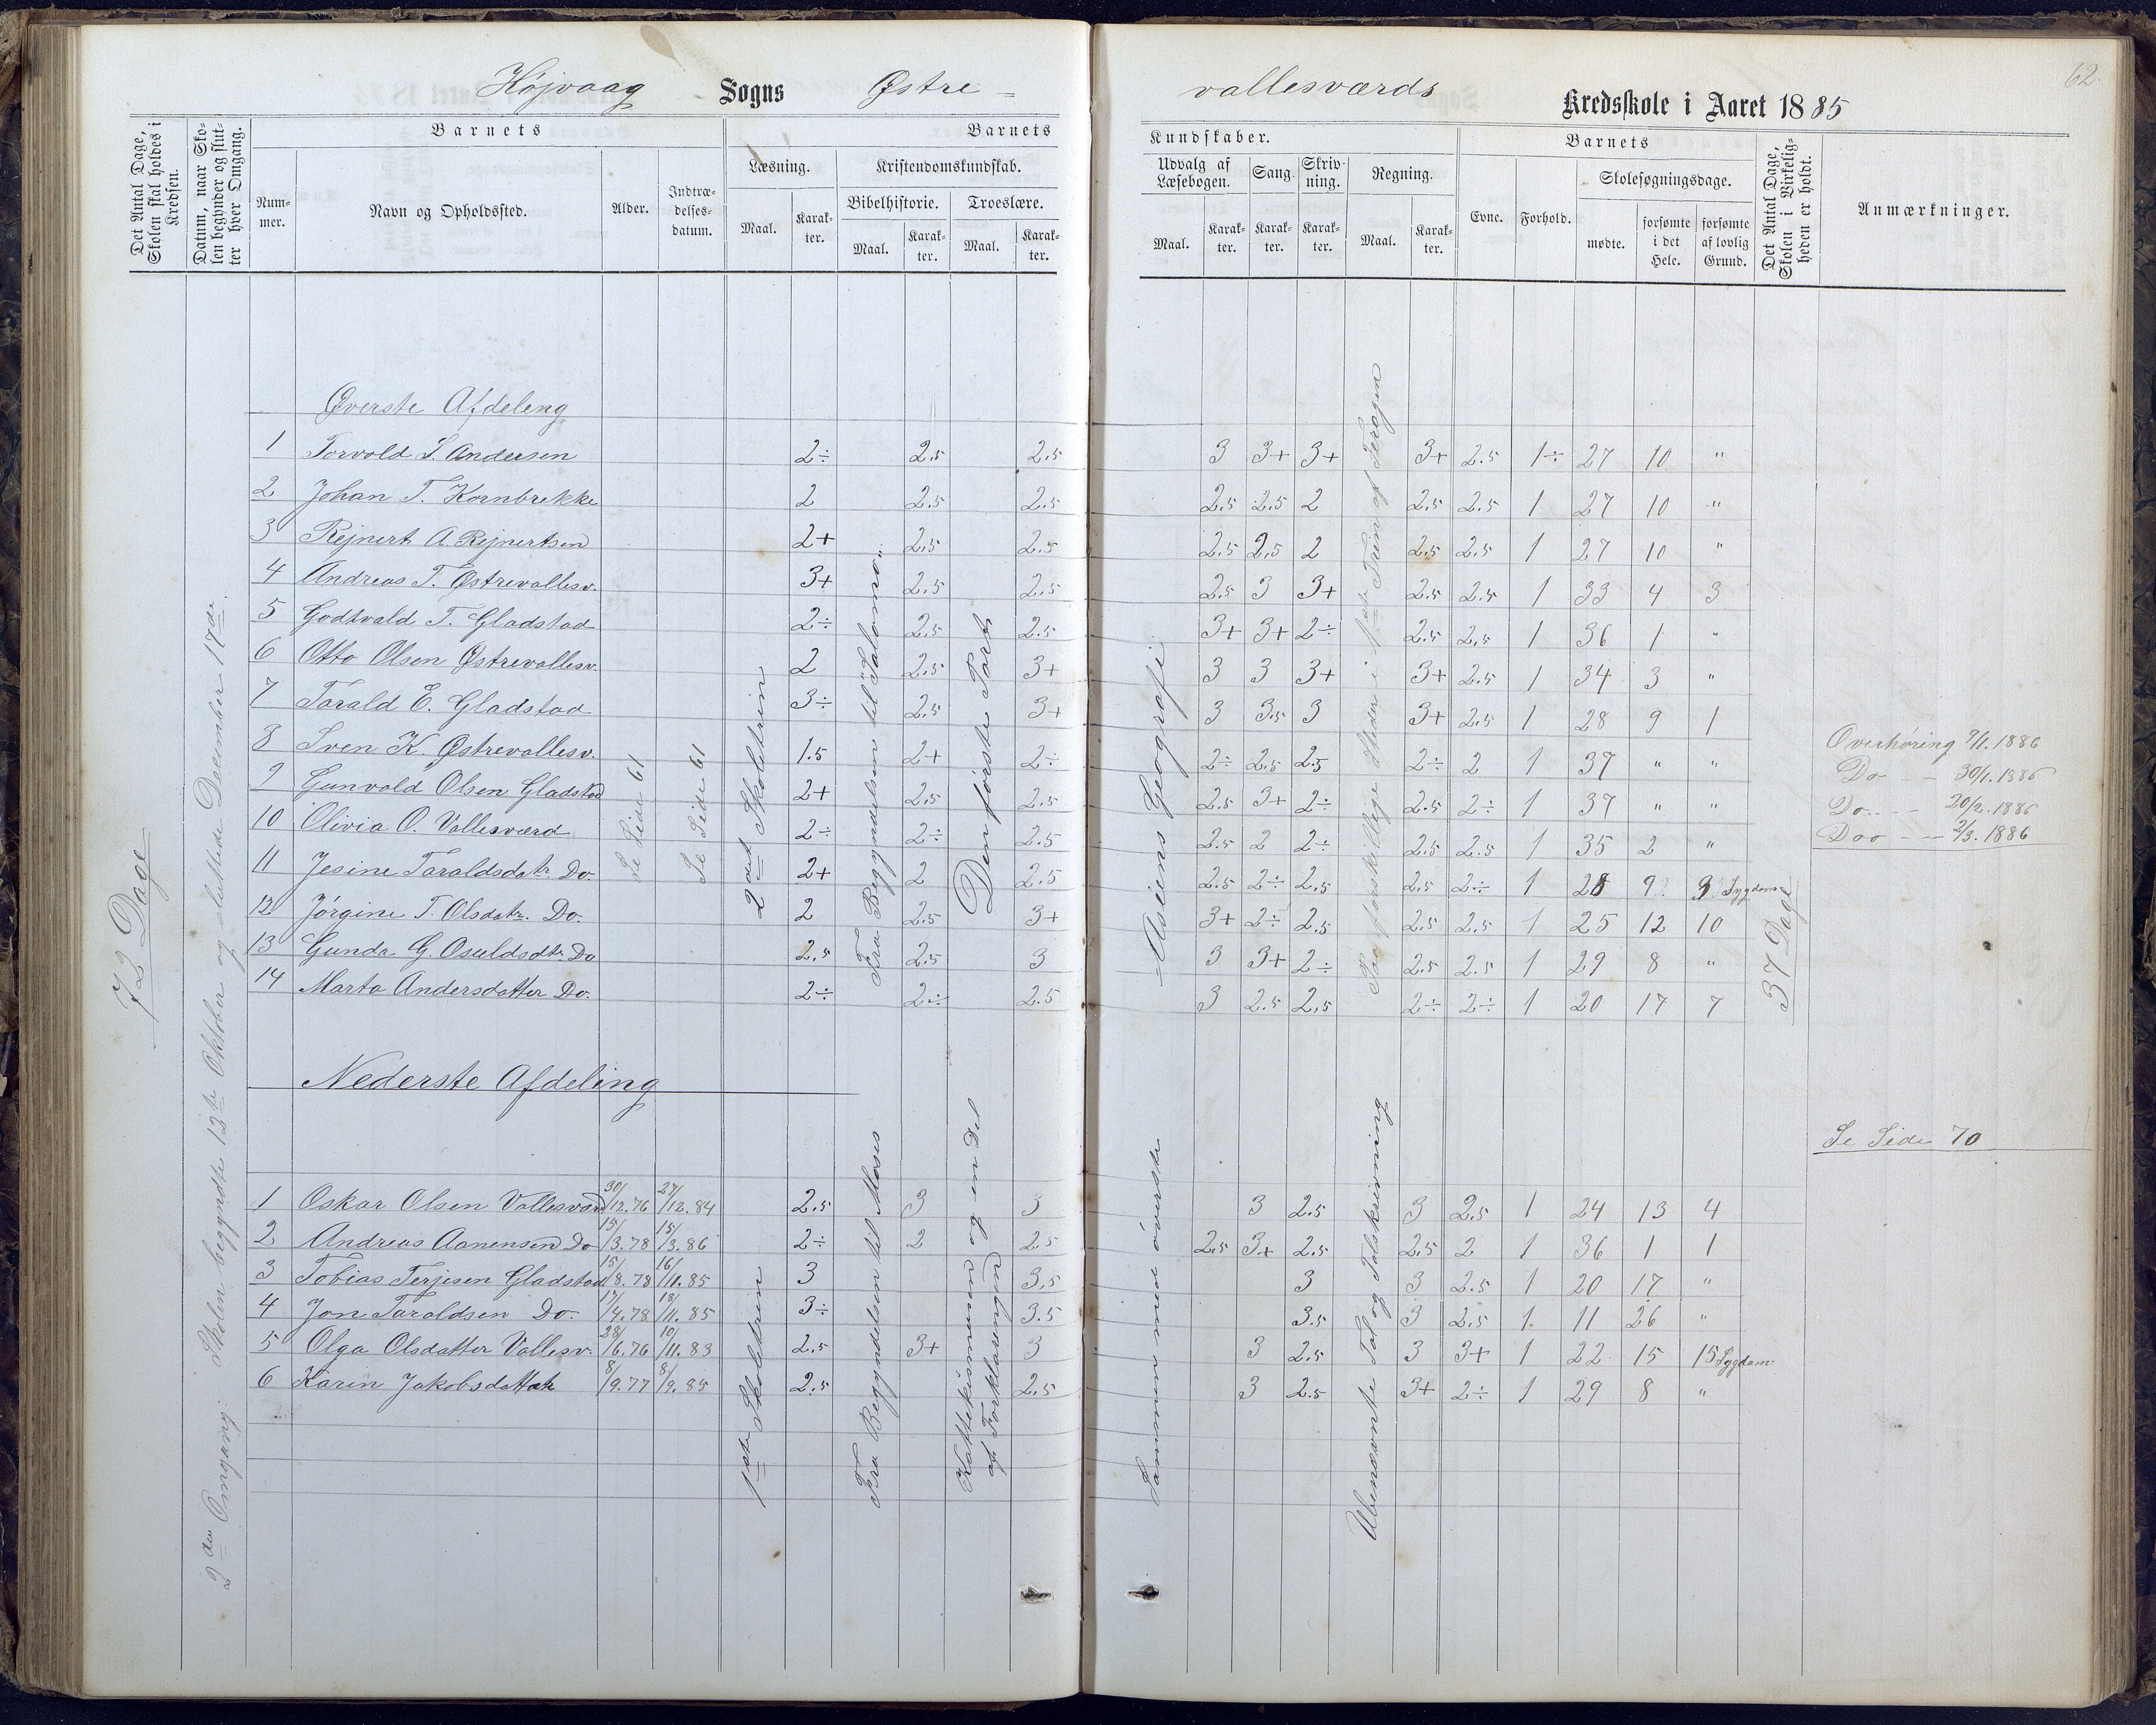 62.
Højvaag Sogns Østre- vallesværds Kredsskole i Aaret 1885
Det Antal Dage, Skolen skal holdes i Kredsen.
Datum, naar Skolen begynder og slutter hver Omgang.
Barnets
Nummer.
Navn og Opholdssted.
Alder.
Indtrædelsesdatum.
Barnets Kundskaber.
Læsning.
Maal. Karakter.
Kristendomskundskab.
Bibelhistorie. Troeslære.
Maal. Karakter. Maal. Karakter.
Udvalg af Læsebogen. Sang. Skrivning. Regning.
Maal. Karakter. Karakter. Karakter. Maal. Karakter.
Barnets
Evne. Forhold. Skolesøgningsdage.
mødte. forsømte i det Hele. forsømte af lovlig Grund.
Det Antal Dage, Skolen i Virkeligheden er holdt.
Anmærkninger.
72 Dage
2den Omgang: Skolen begyndte 13de Oktober og sluttede December 17de.
Øverste Afdeling
Se Side 61
Se Side 61
2det Skoletrin
Fra Begyndelsen til Salomon.
Den første Part
Asiens Geografi
Paa forskjellige Steder i 1ste Trin af Terogen
1 Torvald S. Andersen 2÷ 2.5 2.5 3 3+ 3+ 3+ 2.5 1÷ 27 10 "
2 Johan T. Kornbrekke 2 2.5 2.5 2.5 2.5 2 2.5 2.5 1 27 10 "
3 Rejnert A. Rejnertsen 2+ 2.5 2.5 2.5 2.5 2 2.5 2.5 1 27 10 "
4 Andreas T. Østrevallesv. 3+ 2.5 2.5 2.5 3 3+ 2.5 2.5 1 33 4 3
5 Godtvald T. Gladstad 2÷ 2.5 2.5 3+ 3+ 2÷ 2.5 2.5 1 36 1 "
6 Otto Olsen Østrevallesv. 2 2.5 3+ 3 3 3+ 3+ 2.5 1 34 3 "
7 Tarald E. Gladstad 3÷ 2.5 3+ 3 3.5 3 3+ 2.5 1 28 9 1
8 Sven K. Østrevallesv. 1.5 2+ 2÷ 2÷ 2.5 2.5 2÷ 2 1 37 " "
9 Gunvald Olsen Gladstad 2+ 2.5 2.5 2.5 3+ 2÷ 2.5 2÷ 1 37 " "
10 Olivia O. Vallesværd 2÷ 2÷ 2.5 2.5 2 2÷ 2.5 2.5 1 35 2 "
11 Jesine Taraldsdatr. Do. 2+ 2 2.5 2.5 2÷ 2.5 2.5 2÷ 1 28 9 9 Sygdom
12 Jørgine T. Olsdatr. Do. 2 2.5 3+ 3+ 2÷ 2.5 2.5 2.5 1 25 12 10
13 Gunda G. Osuldsdtr. Do 2.5 2.5 3 3 3+ 2÷ 2.5 2.5 1 29 8 "
14 Marta Andersdatter Do. 2÷ 2÷ 2.5 3 2.5 2.5 2÷ 2÷ 1 20 17 7
37 Dage
Overhøring 9/1. 1886
Do - - 30/1. 1886
Do.... - 20/2. 1886
Doo - - 2/3. 1886
Nederste Afdeling
Se Side 70
1ste Skoletrin
Fra Begyndelsen til Moses
Kattekismusen og en Del af Forklaringen
Sammen med øverste
Ubenævnte Tal og Talskrivning
1 Oskar Olsen Vallesværd 30/12.76 27/12.84 2.5 3 3 3 2.5 3 2.5 1 24 13 4
2 Andreas Aanensen Do 15/3.78 15/3.86 2÷ 2 2.5 2.5 3+ 2.5 2.5 2 1 36 1 1
3 Tobias Terjesen Gladstad 15/8.78 16/11.85 3 3.5 3 3 2.5 1 20 17 "
4 Jon Taraldsen Do. 17/4.78 18/11.85 3÷ 3.5 3.5 3 2.5 1 11 26 "
5 Olga Olsdatter Vallesv. 28/6.76 10/11.83 2.5 3+ 3 3 2.5 3 3+ 1 22 15 15 Sygdom
6 Karin Jakobsdatter 8/9.77 8/9.85 2.5 2.5 3 2.5 3+ 2÷ 1 29 8 "